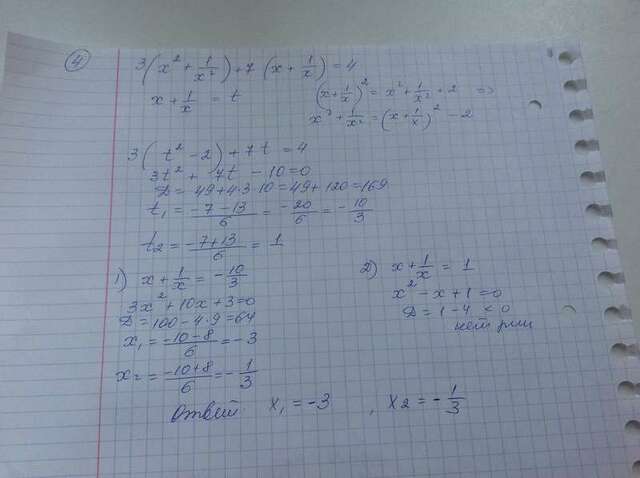 4
3(x² + 1/x²) + 7(x + 1/x) = 4
x + 1/x = t
(x + 1/x)² = x² + 1/x² + 2 =>
x² + 1/x² = (x + 1/x)² - 2
3(t² - 2) + 7t = 4
3t² + 7t - 10 = 0
D = 49 + 4·3·10 = 49 + 120 = 169
t₁ = (-7-13)/6 = -20/6 = -10/3
t₂ = (-7+13)/6 = 1
1) x + 1/x = -10/3
3x² + 10x + 3 = 0
D = 100 - 4·9 = 64
x₁ = (-10-8)/6 = -3
x₂ = (-10+8)/6 = -1/3
2) x + 1/x = 1
x² - x + 1 = 0
D = 1 - 4 < 0
нет реш
Ответ x₁ = -3, x₂ = -1/3